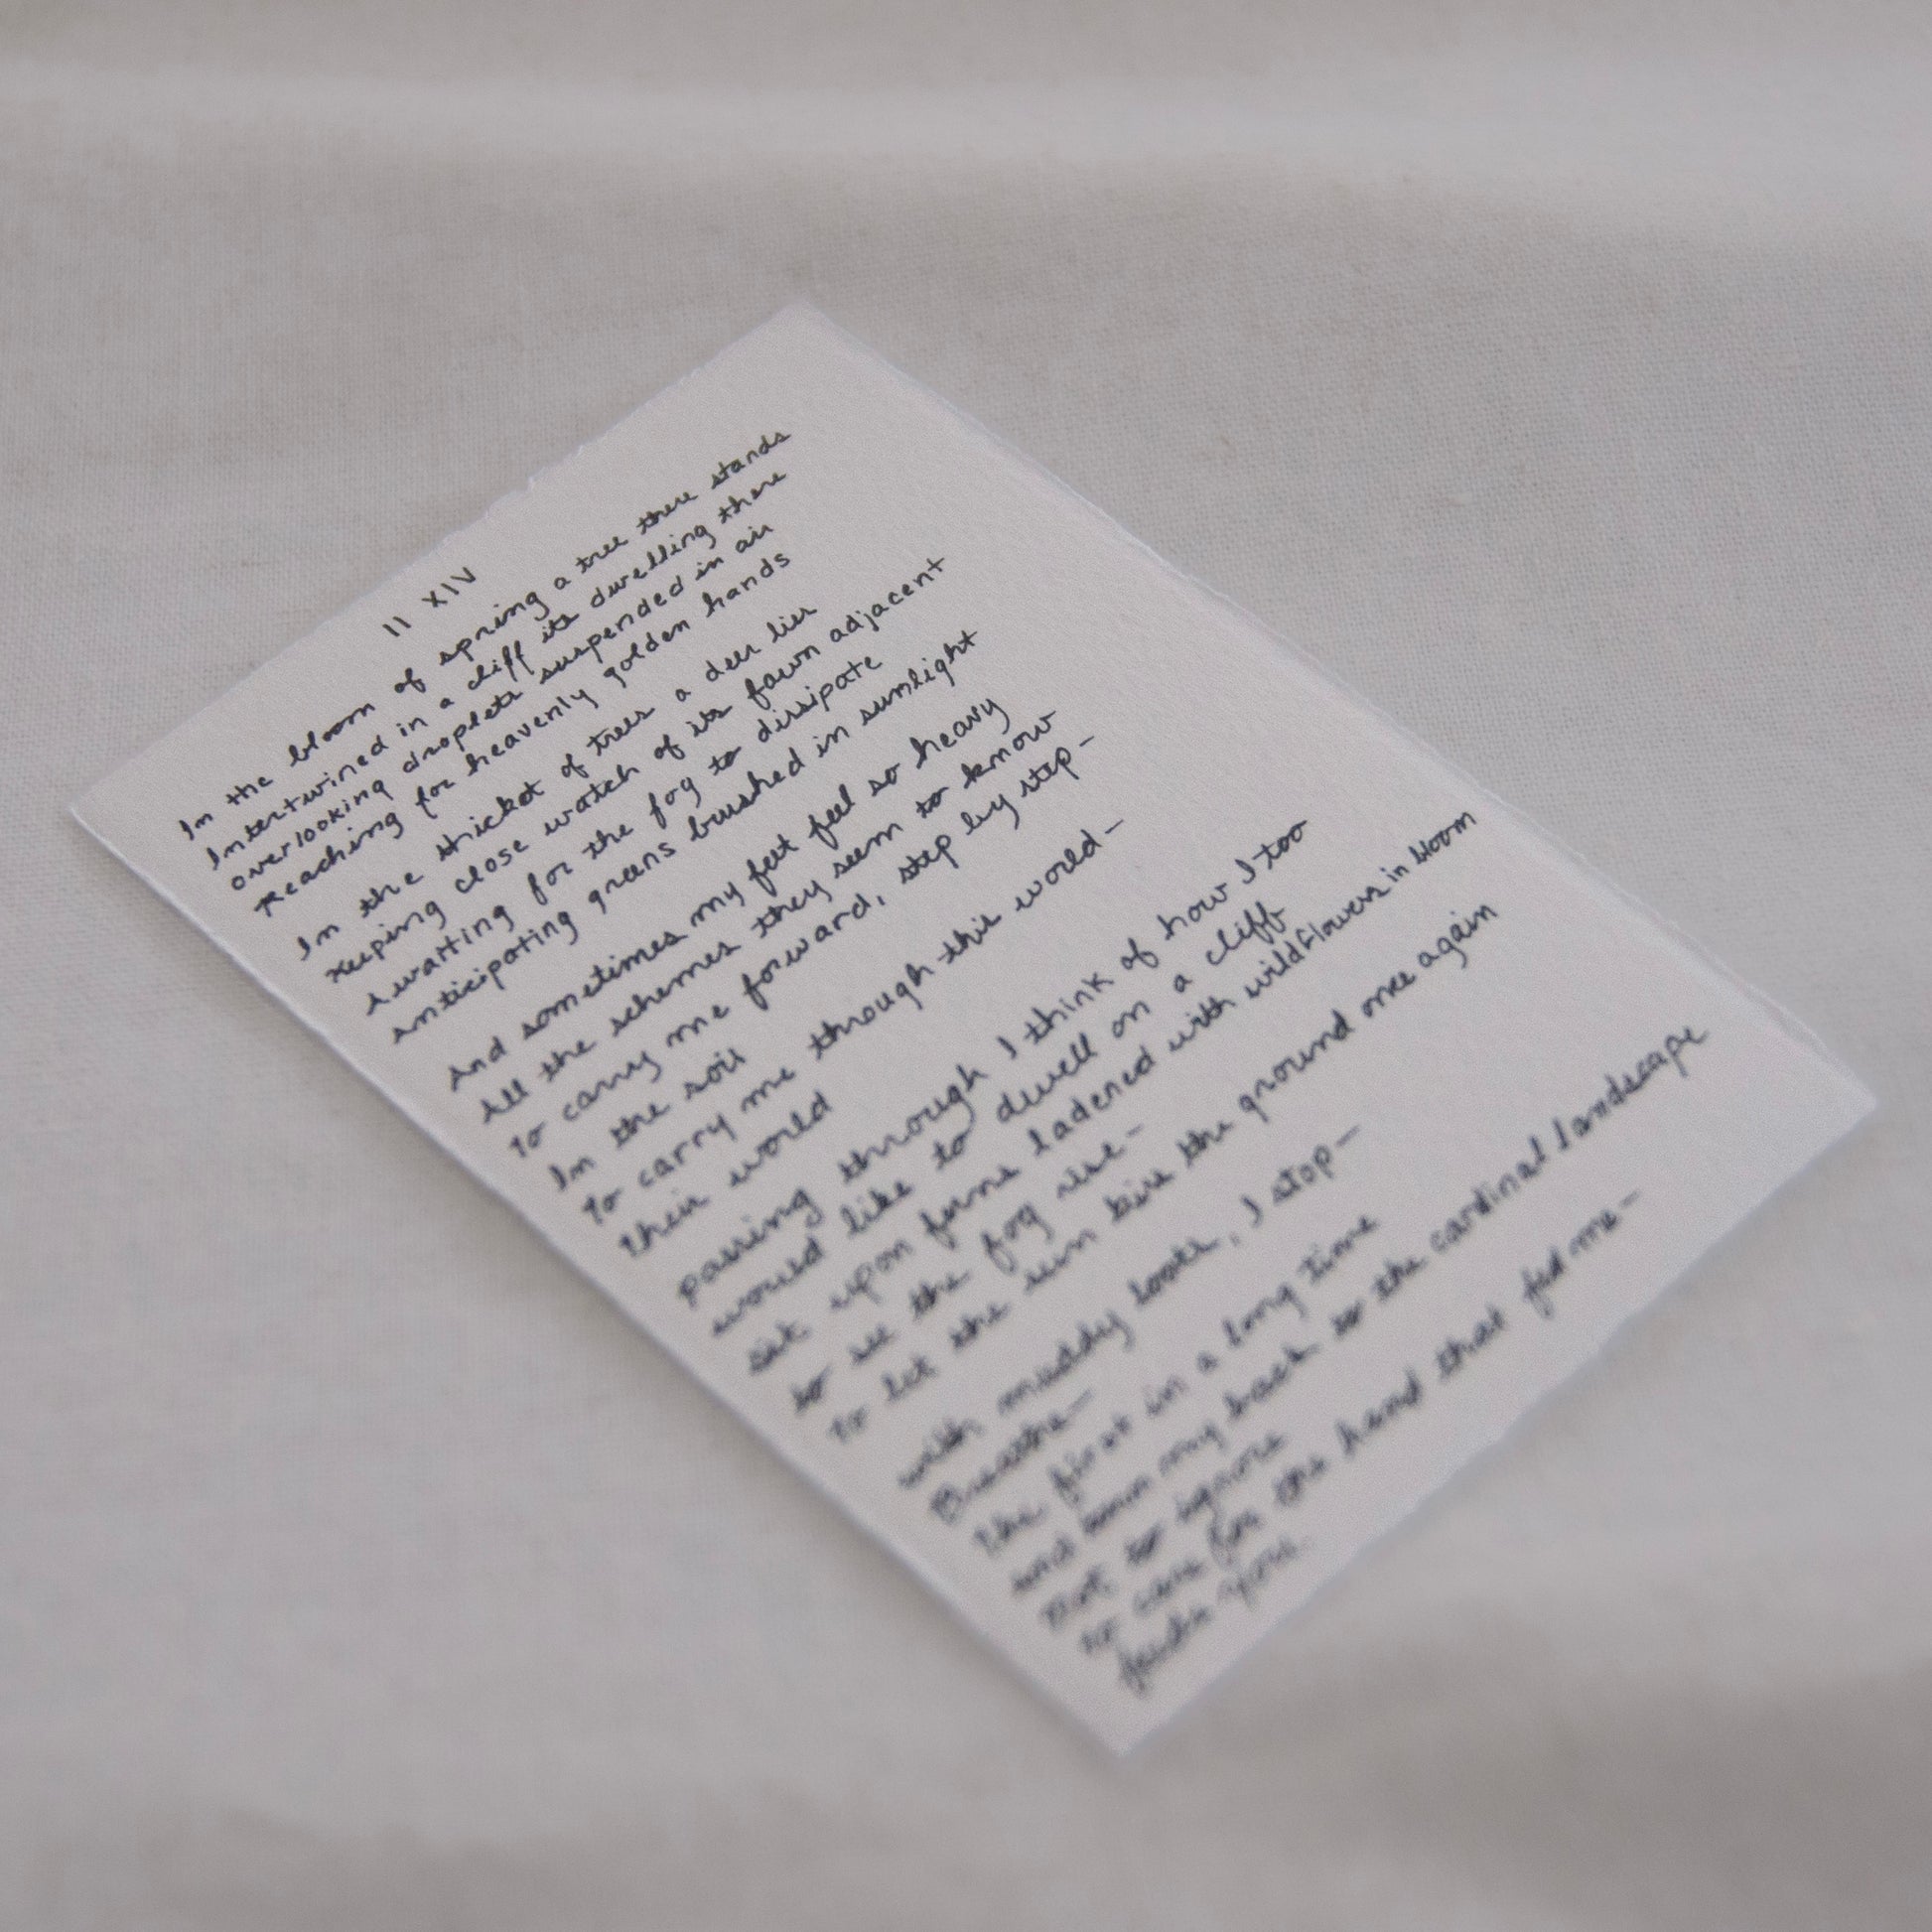 II XIV
In the bloom of spring a tree there stands
Intertwined in a cliff its dwelling there
overlooking droplets suspended in air
Reaching for heavenly golden hands
In the thicket of trees a deer lies
Keeping close watch of its fawn adjacent
Awaiting for the fog to dissipate
Anticipating greens brushed in sunlight
And sometimes my feet feel so heavy
All the schemes they seem to know
To carry me forward, step by step—
In the soil
To carry me through this world—
their world
passing through I think of how I too
would like to dwell on a cliff
sit upon ferns ladened with wildflowers in bloom
to see the fog rise—
To let the sun kiss the ground once again
with muddy boots, I stop—
Breathe—
The first in a long time
and turn my back to the cardinal landscape
Not to ignore
to care for the hand that fed me—
feeds you.